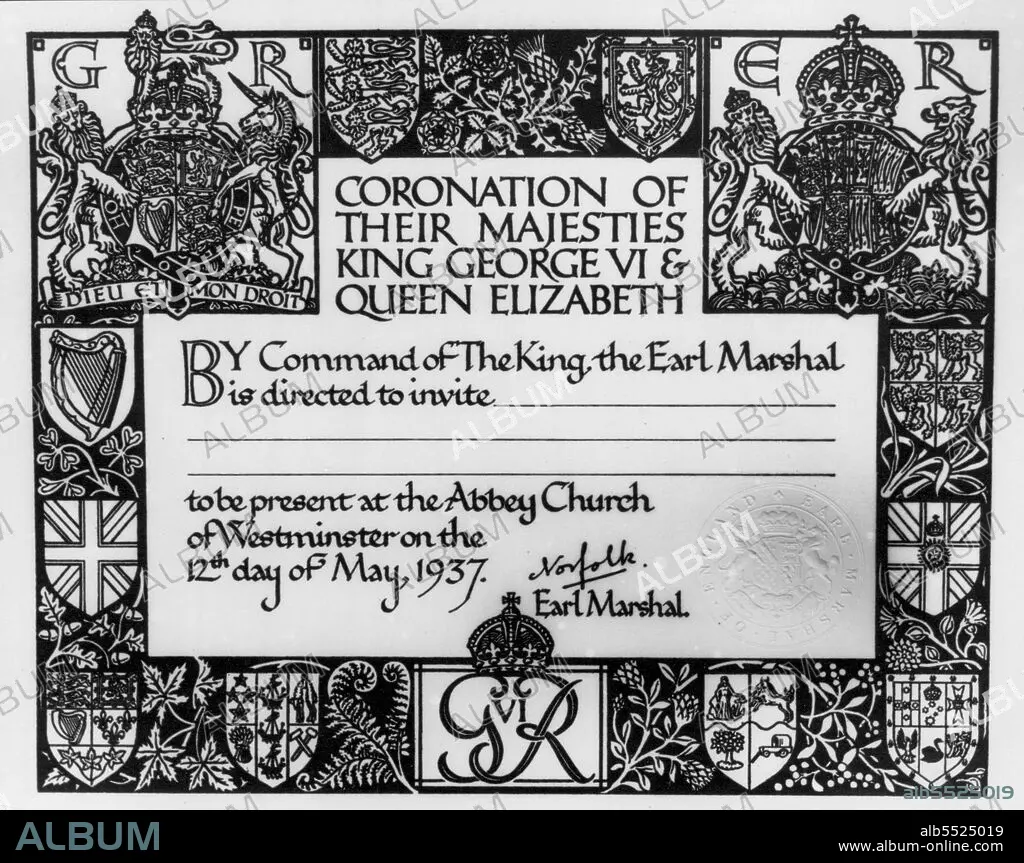 G R
E R
DIEU ET MON DROIT
CORONATION OF
THEIR MAJESTIES
KING GEORGE VI &
QUEEN ELIZABETH
BY Command of The King, the Earl Marshal
is directed to invite
to be present at the Abbey Church
of Westminster on the
12th day of May, 1937.
Norfolk.
Earl Marshal.
EARL MARSHAL OF
G VI R
alb5525019
ALBUM
alb5525019
www.album-online.com